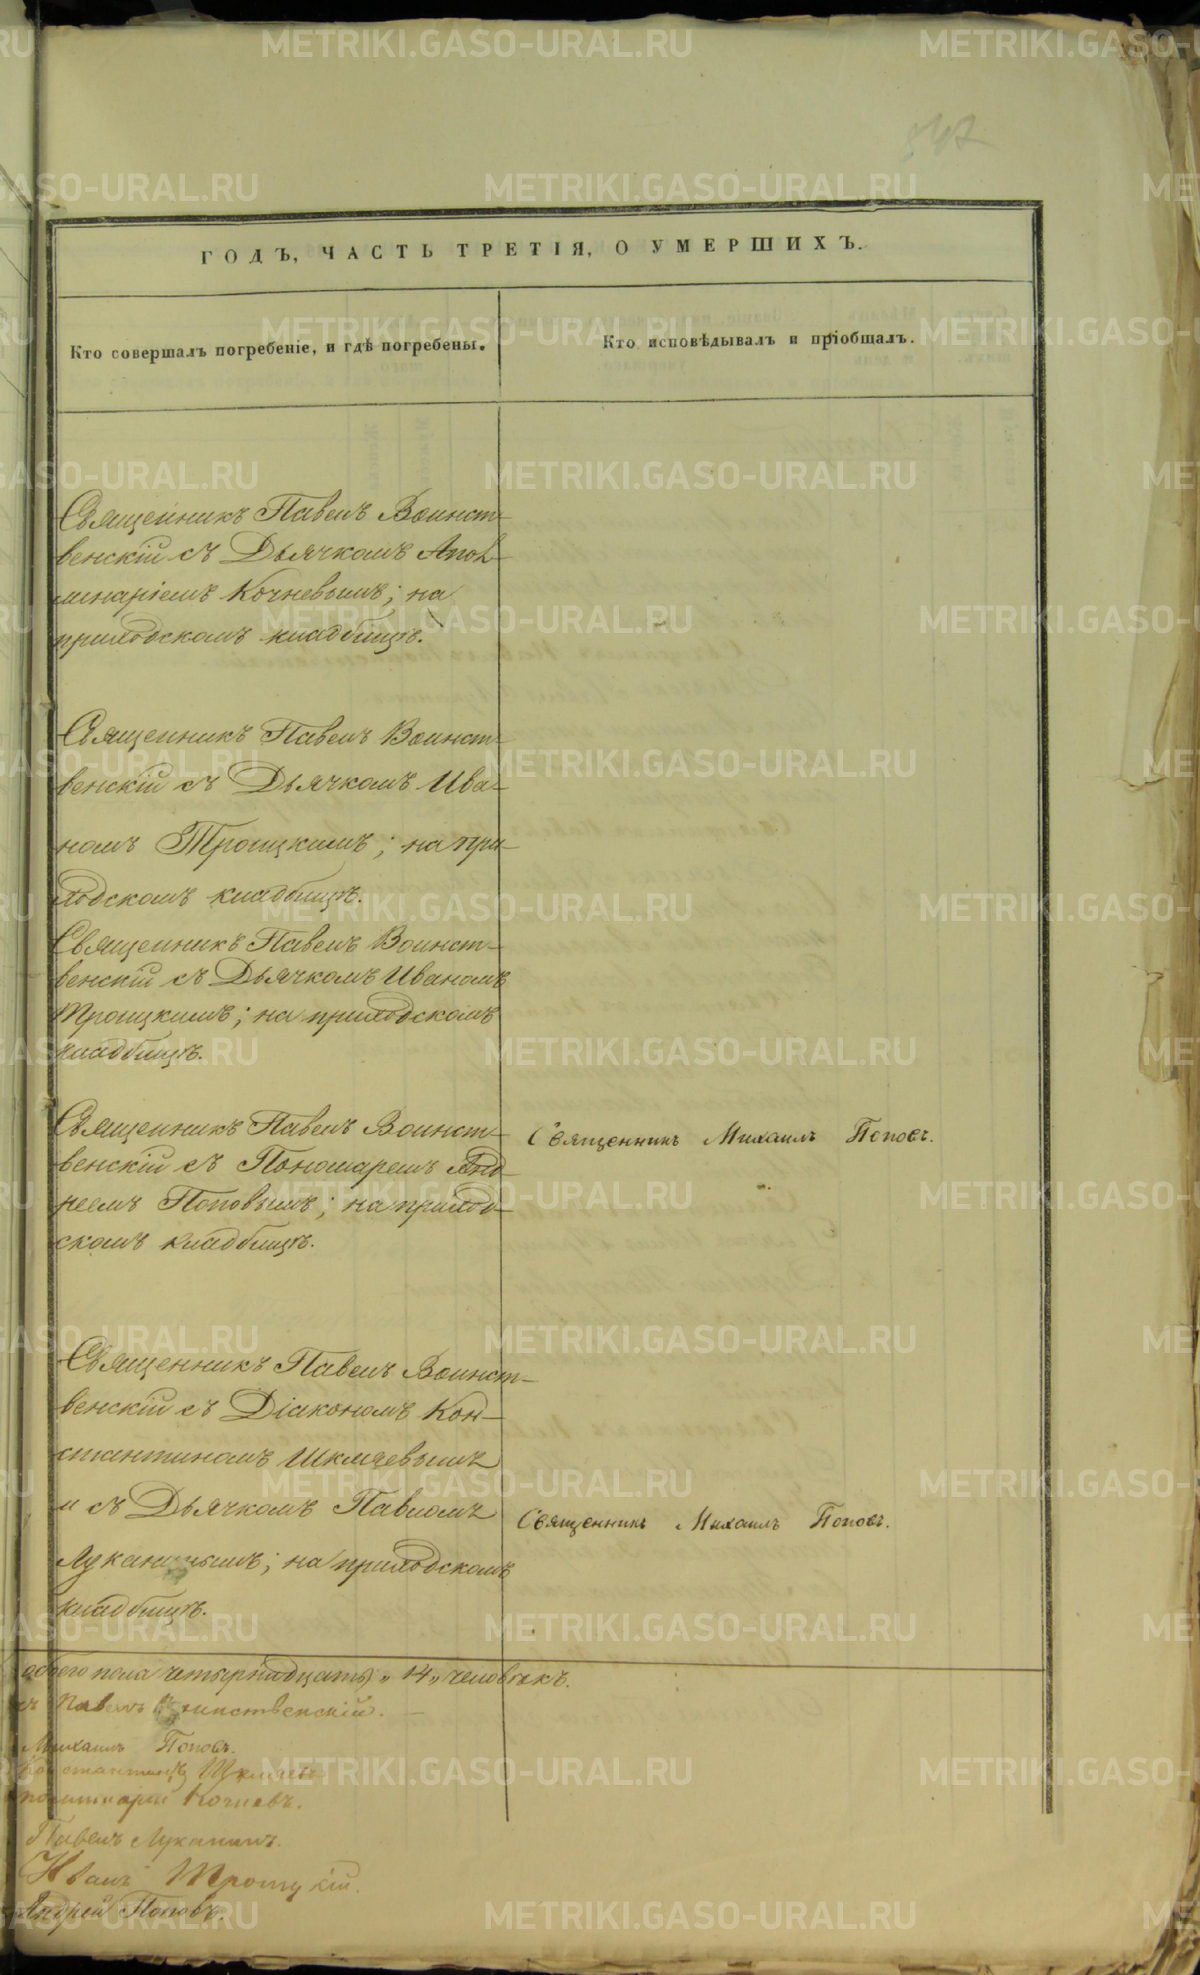 547
ГОДЪ, ЧАСТЬ ТРЕТІЯ, О УМЕРШИХЪ.
Кто совершалъ погребеніе, и гдѣ погребены.
Кто исповѣдывалъ и пріобщалъ.
Священникъ Павелъ Воинст-
венскій съ Дьячкомъ Апол-
линаріемъ Кочневымъ; на
приходскомъ кладбищѣ.
Священникъ Павелъ Воинст-
венскій съ Дьячкомъ Ива-
номъ Троицкимъ; на при-
ходскомъ кладбищѣ.
Священникъ Павелъ Воинст-
венскій съ Дьячкомъ Иваномъ
Троицкимъ; на приходскомъ
кладбищѣ.
Священникъ Павелъ Воинст-
венскій съ Пономаремъ Анд-
реемъ Поповымъ; на приход-
скомъ кладбищѣ.
Священникъ Михаилъ Поповъ.
Священникъ Павелъ Воинст-
венскій съ Діакономъ Кон-
стантиномъ Шкляевымъ
и съ Дьячкомъ Павломъ
Луканинымъ; на приходскомъ
кладбищѣ.
Священникъ Михаилъ Поповъ.
обоего пола четырнадцать „14„ человѣкъ.
ъ Павелъ Воинственскій.
Михаилъ Поповъ.
Константинъ Шкляевъ
полинарій Кочневъ.
Павелъ Луканинъ.
Иванъ Троицкій.
Андрей Поповъ.
METRIKI.GASO-URAL.RU